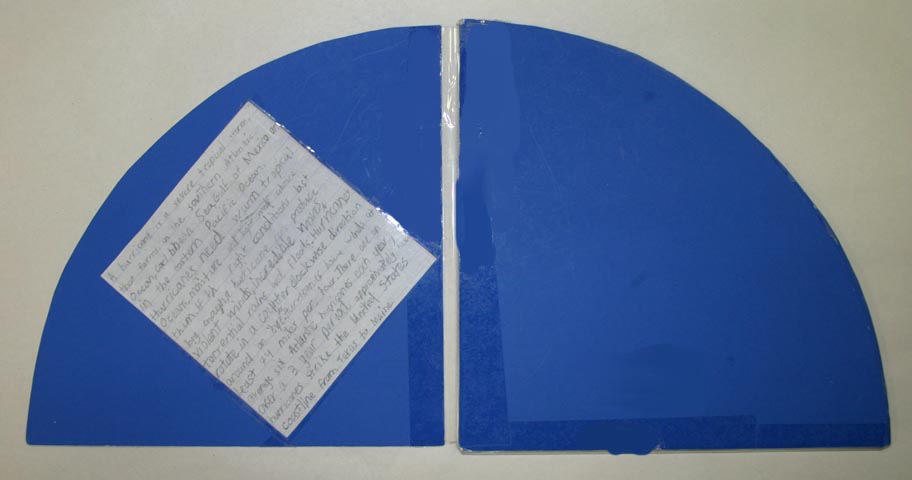 A hurricane is a severe tropical storm
that forms in the southern Atlantic
Ocean, Caribbean Sea, Gulf of Mexico or
in the eastern Pacific Ocean.
Hurricanes need warm tropical
Oceans, moisture and light winds above
them. If the right conditions last
long enough a hurricane will produce
violent winds, incredible waves,
torrential rains and floods. Hurricanes
rotate in a counter clockwise direction
around an "eye". Hurricanes have winds at
least 74 miles per hour. There are on
average six Atlantic hurricanes each year
over a 3 year period, approximately
hurricanes strike the United States
coastline from Texas to Maine